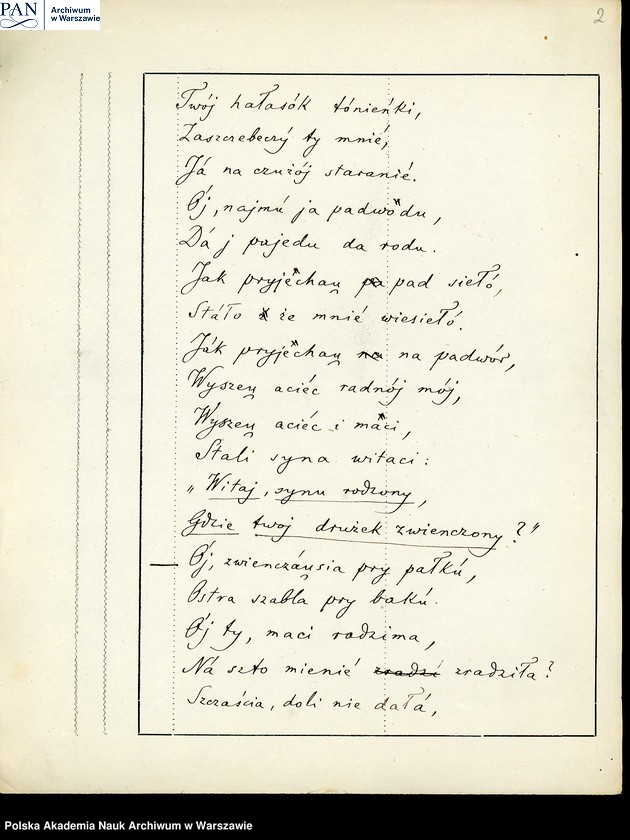 PAN
Archiwum
w Warszawie
2
Twój hałasók tónieńki,
Zaszczebeczý ty mnié,
Já na czużój staranié.
Ój, najmú ja padwòdu,
Dá j pajedu da rodu.
Jak pryjèchau̯ pa pad siełó,
Stáło ż że mnié wiesiełó.
Ják pryjèchau̯ na na padwór,
Wyszeu̯ aciéc radnój mój,
Wyszeu̯ aciéc i màci,
Stali syna witaci:
„Witaj, synu rodzony,
Gdzie twoj drużek zwienczony?"
Ój, zwienczáu̯sia pry pałkú,
Ostra szabla pry bakú.
Ój ty, maci radzima,
Ná szto mienié zradzi zradziła?
Szczaścia, doli nie dałá,
Polska Akademia Nauk Archiwum w Warszawie